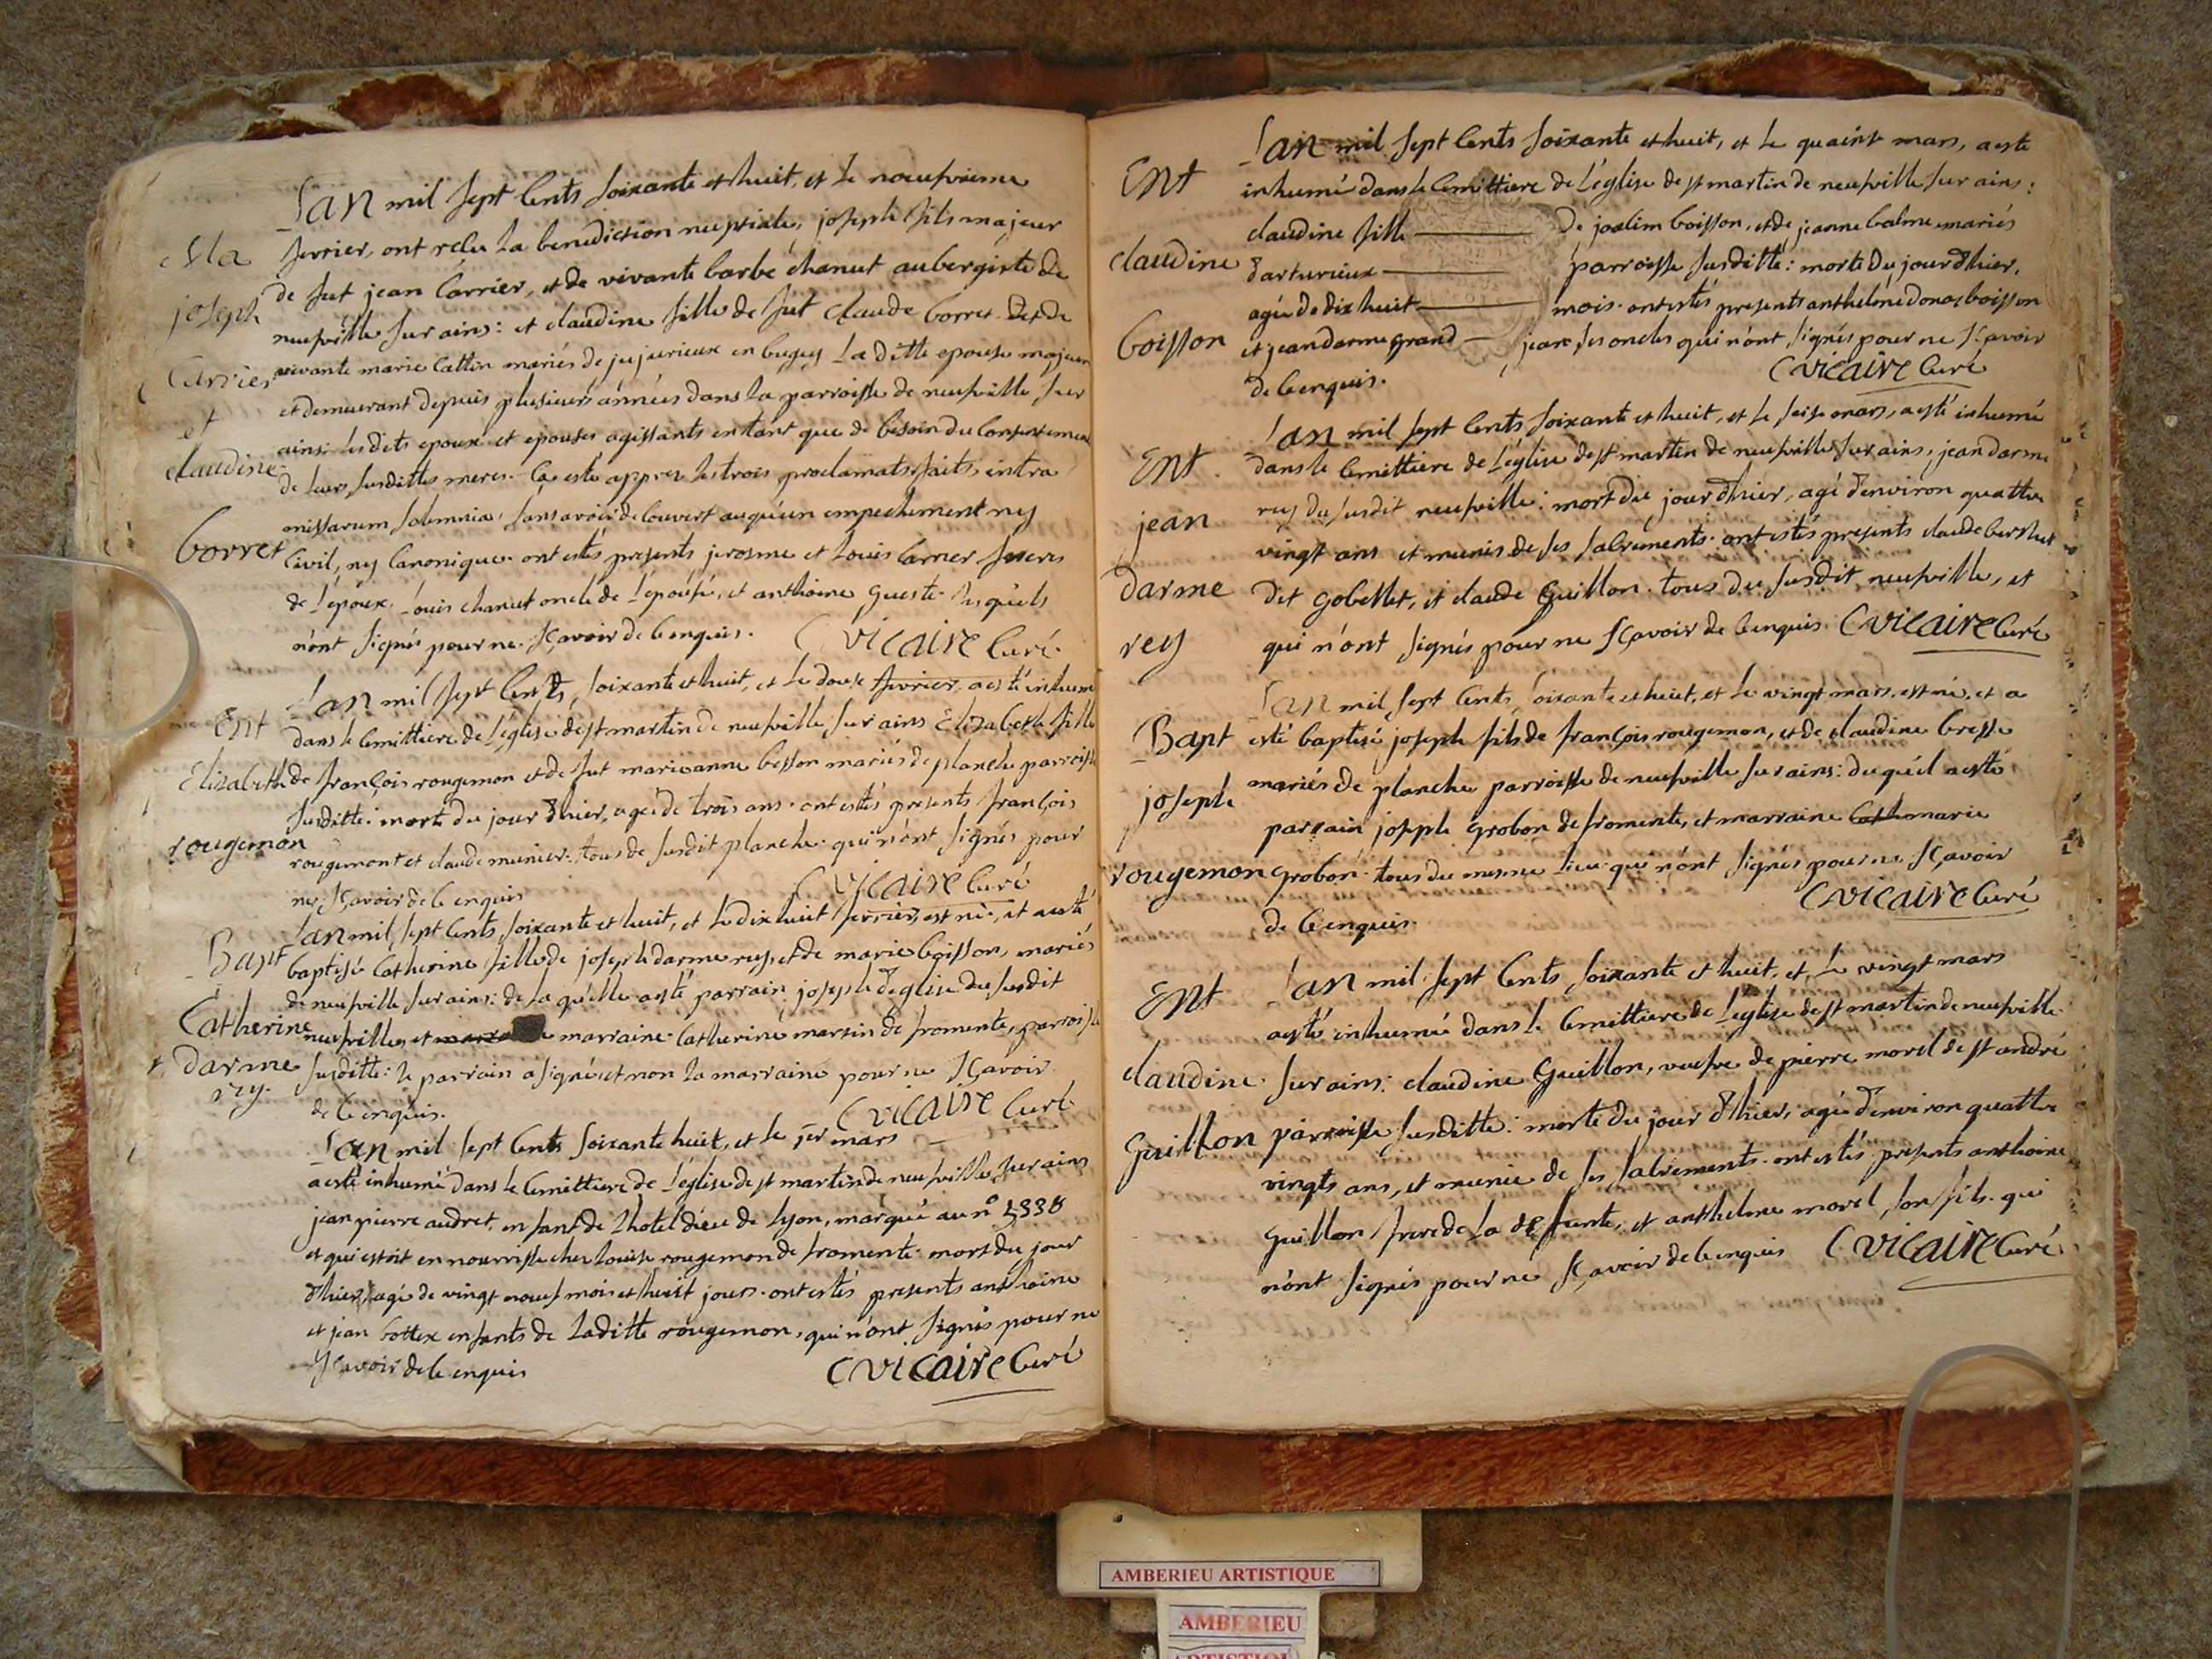 Ma
joseph
Carrier
et
claudine
borret
Lan mil sept cents soixante et huit, et le neufvieme
fevrier, ont relu la benediction nuptiale, joseph fils majeur
de fut jean Carrier, et de vivante barbe chanut aubergiste de
neufville sur ains: et claudine fille de fut Claude borret et de
vivante marie Cattin mariés de jujurieux en bugey la ditte epouse majeure
et demeurant depuis plusieurs années dans la parroisse de neufville sur
ains: lesdits epoux et epouses agissants entant que de besoin du Consentement
de leurs susdittes meres. Ca esté appres les trois proclamats faits intra
missarum solemnia, sans avoir decouvert auqu'un empechement ny
Civil, ny Canonique. ont estés presents jerosme et louis Carrier freres
de l'epoux, louis chanut oncle de l'epousé, et anthoine gueste lesquels
n'ont signés pour ne sçavoir de Cenquis. C vicaire Curé
Ent
Elizabeth
rougemon
Lan mil sept Cents, soixante et huit, et le douse fevrier, a esté inhumé
dans le Cemittiere de l'église de st martin de neufville sur ains Elizabeth fille
de françois rougemon et de fut marieanne besson mariés de planche parroisse
susditte: morte du jour d'hier, agée de trois ans. ont estés presents françois
rougemont et claude munier: tous de susdit planche. qui n'ont signés pour
ne sçavoir de Cenquis C vicaire Curé
Bapt
Catherine
darme
rey.
Lan mil sept Cents, soixante et huit, et le dix huit fevrier, est né, et a esté
baptisé Catherine fille de joseph darme rey, et de marie boisson, mariés
de neufville sur ains: de la qu'elle a esté parrain joseph deglise du susdit
neufville, et marraine Catherine martin de fromente, parroisse
susditte: le parrain a signé et non la marraine pour ne sçavoir
de Cenquis. C vicaire Curé
Lan mil sept Cents soixante huit, et le 1er mars
a esté inhumé dans le Cemittiere de l'église de st martin de neufville sur ains
jean pierre audret, enfant de l'hotel dieu de lyon, marqué au n°
et qui estoit en nourrisse chez louise rougemon de fromente. mort du jour
d'hier, agé de vingt neuf mois et huit jours. ont estés presents anthoine
et jean bottex enfants de laditte rougemon, qui n'ont signés pour ne
sçavoir de Cenquis C vicaire Curé
Ent
claudine
boisson
Lan mil sept Cents soixante et huit, et le quainse mars, a esté
inhumé dans le Cemittiere de l'église de st martin de neufville sur ains:
claudine fille de joalim boisson, et de jeanne balme mariés
d'arturieux parroisse susditte: morte du jour d'hier,
agée de dix huit mois. ont estés presents anthelme donat boisson
et jean darme grand jean, ses oncles qui n'ont signés pour ne sçavoir
de Cenquis. C vicaire Curé
Ent
jean
darme
rey
Lan mil sept Cents soixante et huit, et le seise mars, a esté inhumé
dans le Cemittiere de l'église de st martin de neufville sur ains, jean darme
rey du susdit neufville: mort du jour d'hier, agé d'environ quattre
vingt ans et munis de ses sacrements. ont estés presents claude
dit gobellet, et claude Guillon. tous du susdit neufville, et
qui n'ont signés pour ne sçavoir de Cenquis. C vicaire Curé
Bapt
joseph
rougemon
Lan mil sept Cents, soixante et huit, et le vingt mars, est né, et a
esté baptisé joseph fils de françois rougemon, et de claudine bresse
mariés de planche parroisse de neufville sur ains: duqu'el a esté
parrain joseph grobon de fromente, et marraine marie
grobon. tous du mesme lieu. qui n'ont signés pour ne sçavoir
de Cenquis. C vicaire Curé
Ent
claudine
Guillon
Lan mil sept Cents soixante et huit, et le vingt mars
a esté inhumée dans le Cemittiere de l'église de st martin de neufville
sur ains: claudine Guillon, veufve de pierre morel de st andré
parroisse susditte: morte du jour d'hier, agée d'environ quattre
vingts ans, et munie de ses sacrements. ont estés presents anthoine
guillon frere de la defunte, et anthelme morel, son fils. qui
n'ont signés pour ne sçavoir de Cenquis C vicaire Curé
AMBERIEU ARTISTIQUE
AMBERIEU